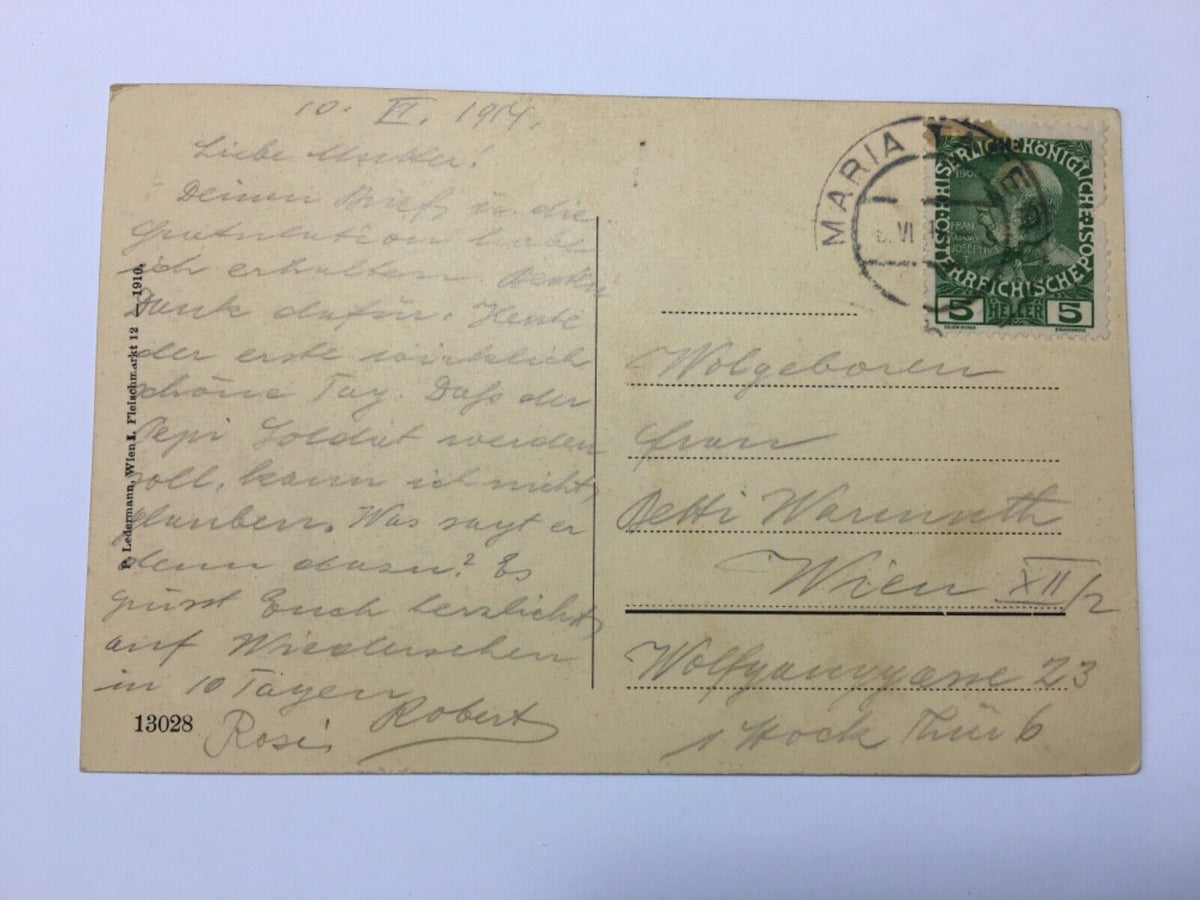 10. VI. 1914.
Liebe Mutter!
Deinen Brief u. die
Gratulation habe
ich erhalten. Besten
Dank dafür. Heute
der erste wirklich
schöne Tag. Daß der
Pepi Soldat werden
soll, kann ich nicht
glauben. Was sagt er
denn dazu? Es
grüsst Euch herzlichst
auf Wiedersehen
in 10 Tagen
Robert
Rosi
13028
P. Ledermann, Wien I. Fleischmarkt 12 — 1910.
MARIA
VI
KAISERLICHE KÖNIGLICHE
ÖSTERREICHISCHE POST
1908
FRANZ
JOSEPH
5 HELLER 5
Wolgeboren
Frau
Betti Warmuth
Wien XII/2
Wolfganggasse 23
1 Stock Thür 6